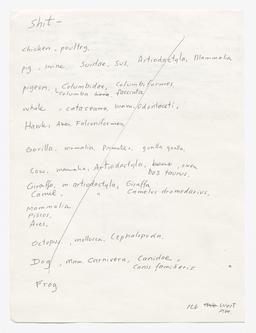 Shit -
chicken, poultry.
pig, swine, Suidae, Sus, Artiodactyla, Mammalia
pigeon, Columbidae, Columbiformes,
Columba fasciata
whale, cataceana, mam/Odontoceti,
Hawk, Aves Falconiformes
Gorilla, mamalia, Primates, gorilla gorilla,
Cow, mamalia, Artiodactyla,
bos taurus.
Giraffe, m. artiodactyla, Giraffa
Camel " Camelus dromedarius,
Mammalia
Pisces
Aves,
Octopus, mollusca, Cephalopoda,
Dog, mam. Carnivora, Canidae,
Canis familiaris
Frog
126 West